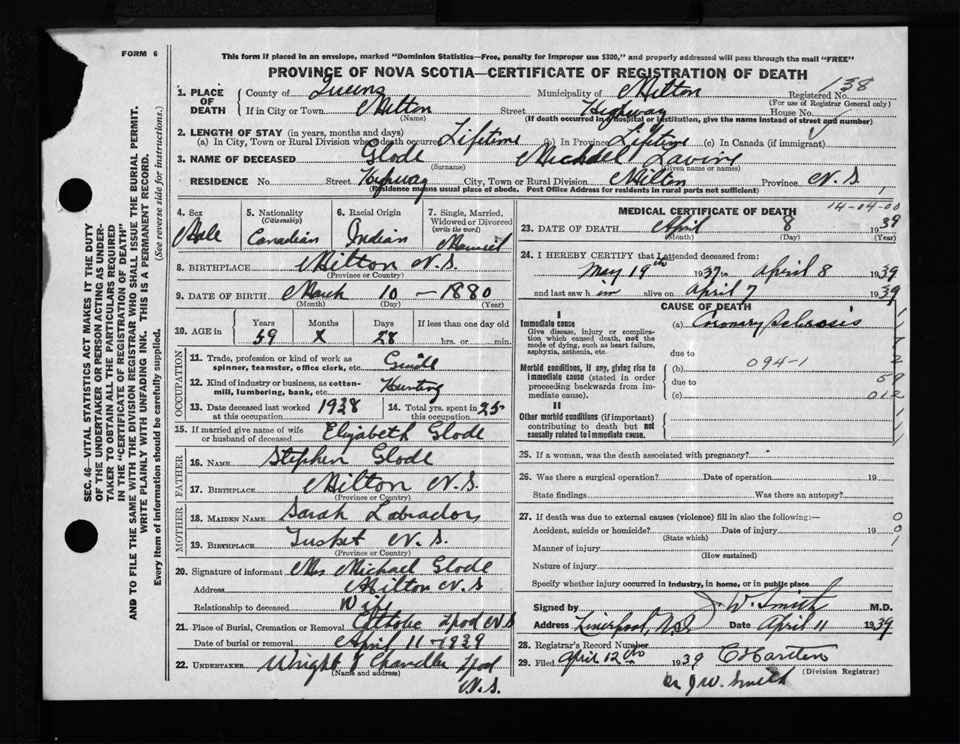 FORM 6
This form if placed in an envelope, marked "Dominion Statistics—Free, penalty for improper use $300," and properly addressed will pass through the mail "FREE"
PROVINCE OF NOVA SCOTIA—CERTIFICATE OF REGISTRATION OF DEATH
138
1. PLACE OF DEATH County of Queens Municipality of Milton Registered No.
(For use of Registrar General only)
If in City or Town Milton Street Highway House No.
(Name) (If death occurred in a hospital or institution, give the name instead of street and number)
2. LENGTH OF STAY (in years, months and days)
(a) In City, Town or Rural Division where death occurred Lifetime (b) In Province Lifetime (c) In Canada (if immigrant)
3. NAME OF DECEASED Glode Michael Lavine
(Surname) (Given name or names)
RESIDENCE No. Street Highway City, Town or Rural Division Milton Province N.S.
(Residence means usual place of abode. Post Office Address for residents in rural parts not sufficient)
4. Sex Male
5. Nationality (Citizenship) Canadian
6. Racial Origin Indian
7. Single, Married, Widowed or Divorced (write the word) Married
8. BIRTHPLACE Milton N.S.
(Province or Country)
9. DATE OF BIRTH March 10 - 1880
(Month) (Day) (Year)
10. AGE in Years Months Days If less than one day old
59 X 28 hrs. or min.
OCCUPATION
11. Trade, profession or kind of work as spinner, teamster, office clerk, etc. Guide
12. Kind of industry or business, as cotton-mill, lumbering, bank, etc. Hunting
13. Date deceased last worked at this occupation 1938
14. Total yrs. spent in this occupation 25
15. If married give name of wife or husband of deceased Elizabeth Glode
FATHER
16. NAME Stephen Glode
17. BIRTHPLACE Milton N.S.
(Province or Country)
MOTHER
18. MAIDEN NAME Sarah Labrador
19. BIRTHPLACE Tusket N.S.
(Province or Country)
20. Signature of informant Mrs Michael Glode
Address Milton N.S
Relationship to deceased Wife
21. Place of Burial, Cremation or Removal Catholic Lpool N.S
Date of burial or removal April 11 - 1939
22. UNDERTAKER Wright & Chandler Lpool
(Name and address) N.S.
MEDICAL CERTIFICATE OF DEATH
14-04-00
23. DATE OF DEATH April 8 1939
(Month) (Day) (Year)
24. I HEREBY CERTIFY that I attended deceased from:
May 19th 1937 to April 8 1939
and last saw him alive on April 7 1939
CAUSE OF DEATH
I
Immediate cause (a) Coronary Sclerosis
Give disease, injury or complication which caused death, not the mode of dying, such as heart failure, asphyxia, asthenia, etc.
due to
(b) 094-1
Morbid conditions, if any, giving rise to immediate cause (stated in order proceeding backwards from immediate cause).
due to 59
(c) 012
II
Other morbid conditions (if important) contributing to death but not causally related to immediate cause.
25. If a woman, was the death associated with pregnancy?
26. Was there a surgical operation? Date of operation 19
State findings Was there an autopsy?
27. If death was due to external causes (violence) fill in also the following:— 0
Accident, suicide or homicide? Date of injury 19 0
(State which)
Manner of injury 1
(How sustained)
Nature of injury
Specify whether injury occurred in industry, in home, or in public place
Signed by J. W. Smith M.D.
Address Liverpool, N.S. Date April 11 1939
28. Registrar's Record Number
29. Filed April 12th 1939 C Harten
(Division Registrar)
J W. Smith
SEC. 46—VITAL STATISTICS ACT MAKES IT THE DUTY
OF THE UNDERTAKER OR PERSON ACTING AS UNDERTAKER TO OBTAIN ALL THE PARTICULARS REQUIRED
IN THE "CERTIFICATE OF REGISTRATION OF DEATH"
AND TO FILE THE SAME WITH THE DIVISION REGISTRAR WHO SHALL ISSUE THE BURIAL PERMIT.
WRITE PLAINLY WITH UNFADING INK. THIS IS A PERMANENT RECORD.
Every item of information should be carefully supplied. (See reverse side for instructions.)